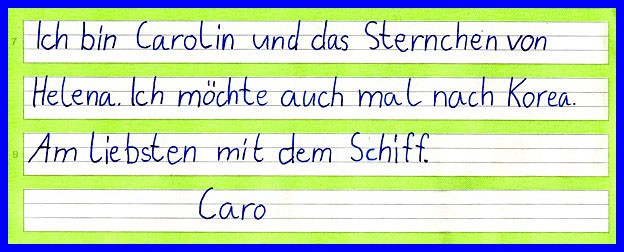 7 Ich bin Carolin und das Sternchen von
Helena. Ich möchte auch mal nach Korea.
9 Am liebsten mit dem Schiff.
Caro